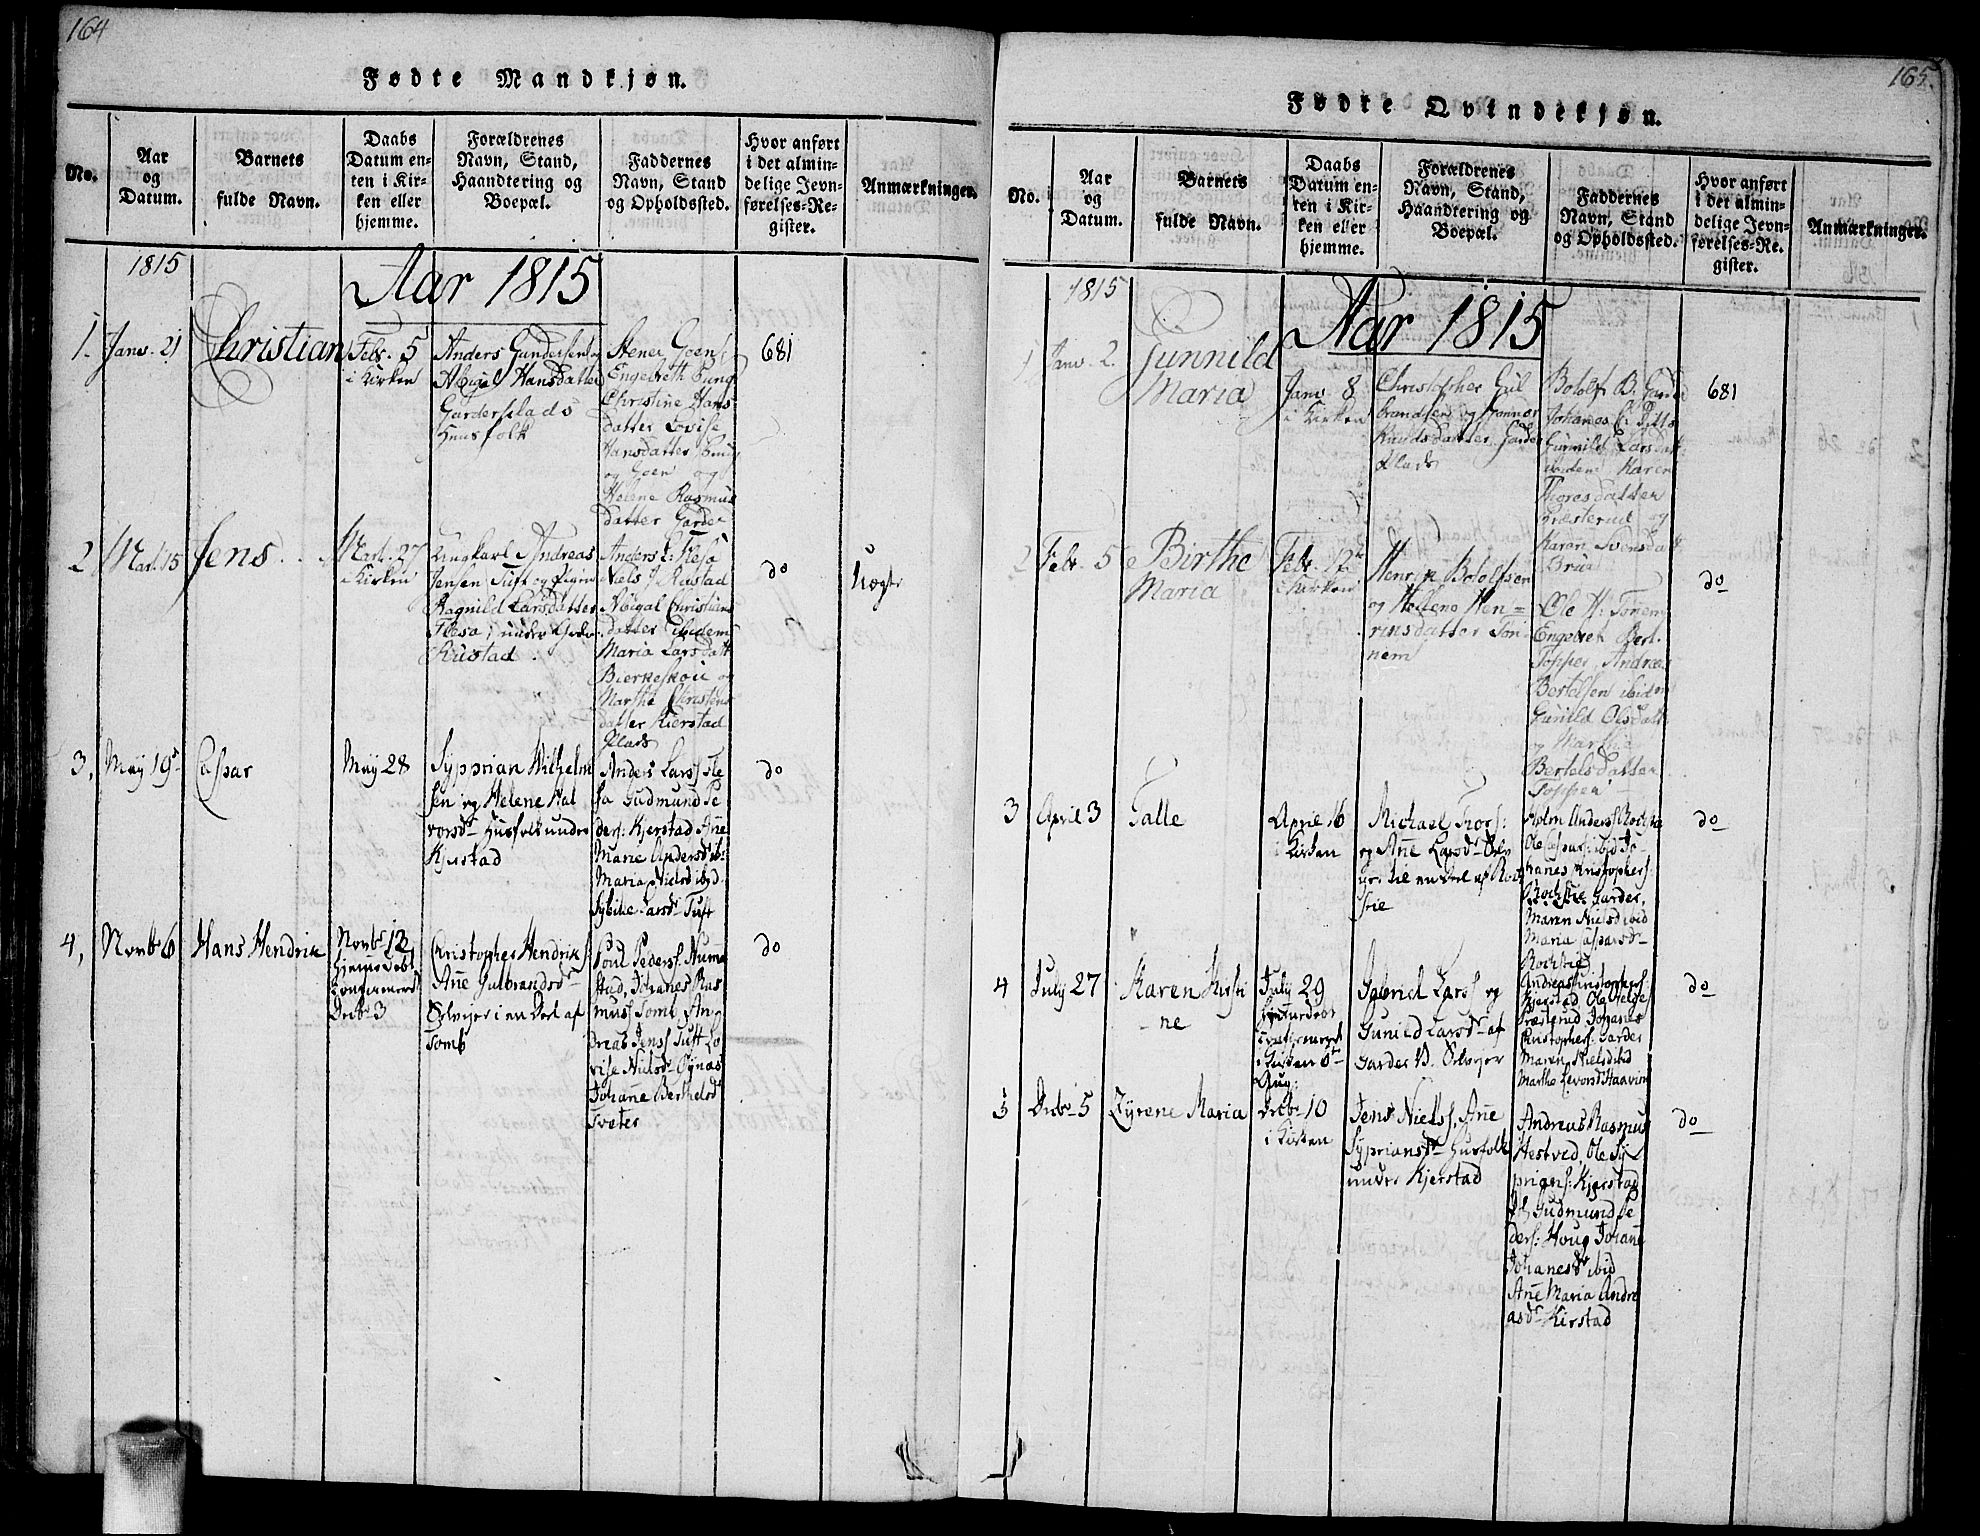 164
Fødte Mandkjøn.
No.
Aar
og
Datum.
Barnets
fulde Navn.
Daabs
Datum en-
ten i Kir-
ken eller
hjemme.
Forældrenes
Navn, Stand,
Haandtering og
Boepæl.
Faddernes
Navn, Stand
og Opholdssted.
Hvor anført
i det almin-
delige Jevn-
førelses-Re-
gister.
Anmærkninger.
1815
Aar 1815
1.
Janv. 21
Christian
Febr. 5
i Kirken
Anders Gundersen
Abigal Hansdatter
Garderplads
Huusfolk
Stener Goen
Engebreth
Christine Hans
datter Lovise
Hansdatter
og Goen og
Helene Rasmus
datter Garder
681
2
Mart. 15
Jens
Mart. 27
i Kirken
Ungkarl Andreas
Jensen Tuft og Pigen
Ragnild Larsdatter
Flesa, under
Kiustad
Anders L. Flesa
Niels J. Kiustad
Abigal Christians
datter ibidem
Maria Larsdatt
Bierkeskou og
Marthe Christens
datter Kierstad
Plads
do
Uægte
3,
May 19
Caspar
May 28
Sypprian Wilhelm
sen og Helene Hal
vorsdr Husfolk under
Kjerstad
Anders Larss Fle
sa Gudmund Pe
ders: Kjerstad Anne
Marie Andersd ib:
Maria Nielsd ibd.
Sybille Larsd Tuft
do
4,
Novbr 6
Hans Hendrik
Novbr 12
hjemmedøbt
Confirmeret
Decbr 3
Christopher Hendriks:
Ane Gulbrandsdr
Selvejer i en Deel af
Tomb
Poul Peders Numme
stad, Johanes Ras
muss Tomb, An
dreas Jenss Tuft Lo
vise Nielsdr Oynas
Johane Berthelsd
Tveter
do
165.
Fødte Qvindekjøn.
No.
Aar
og
Datum.
Barnets
fulde Navn.
Daabs
Datum en-
ten i Kir-
ken eller
hjemme.
Forældrenes
Navn, Stand,
Haandtering og
Boepæl.
Faddernes
Navn, Stand
og Opholdssted.
Hvor anført
i det almin-
delige Jevn-
førelses-Re-
gister.
Anmærkninger.
1815
Aar 1815
1
Janv. 2.
Gunnild
Maria
Janv 8
i Kirken
Christopher Gul
brandsen og Gunnor
Knudsdatter Garder
Plads
Botolf B. Garder
Johanes C.
Gunnild Larsdatt
ibidem Karen
Thoresdatter
Præsterud og
Karen Svensdatt
681
2
Febr. 5
Birthe
Maria
Febr. 12te
i Kirken
Henrik Botolfsen
og Hellene Hen-
riksdatter Ton-
nem
Ole H: Tonem
Engebret Bert.
Topper, Andreas
Bertelsen ibidem
Gunild Olsdatt
og Marthe
Bertelsdatter
Toppen
do
3
April 3
Talle
Aprie 16
i Kirken
Michael Thors:
og Anne Larsdr Selv
ejer til en Deel af Roch
stie
Holm Anderss Rochstie
Ole Caspars: ibid Jo
hanes Kristophers:
Rochstie Garder,
Maren Nielsd ibid
Maria Caspersdr
Rochstie
do
4
July 27
Karen Kirsti
-ne
July 29
hjemmedøbt
Confirmeret
i Kirken 6te
Aug:
Gabriel Larss og
Gunild Larsdr af
Garder V. Selvejer
Andreas Kristophers:
Kjerstad Ole Helges
Præsterud Johanes
Kristophers: Garder
Maren Nielsd ibid
Marthe Levorsd Haavim
do
5
Decbr 5
Zyrene Maria
Decbr 10
i Kirken
Jens Nielss, Ane
Sypriansdr Husfolk
under Kjerstad
Andreas Rasmus
Hestved, Ole Sy
prigens: Kjerstad
Gudmund Pe
ders: Houg Johane
Johanesdr ibid
Ane Maria Andre
asdr Kirstad
do